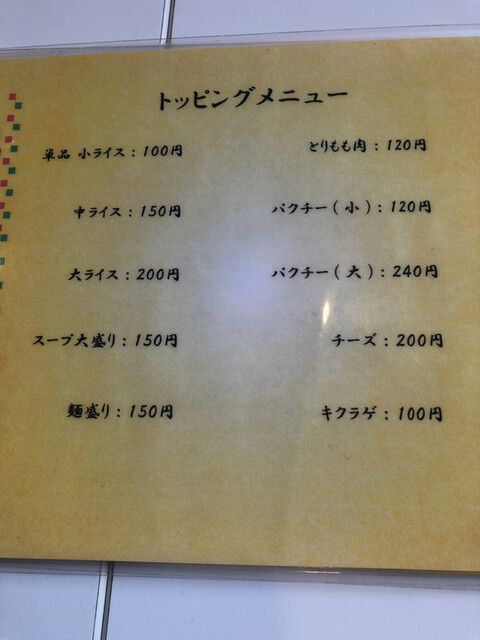 トッピングメニュー
単品 小ライス : 100円
中ライス : 150円
大ライス : 200円
スープ大盛り : 150円
麺盛り : 150円
とりもも肉 : 120円
パクチー ( 小 ) : 120円
パクチー ( 大 ) : 240円
チーズ : 200円
キクラゲ : 100円